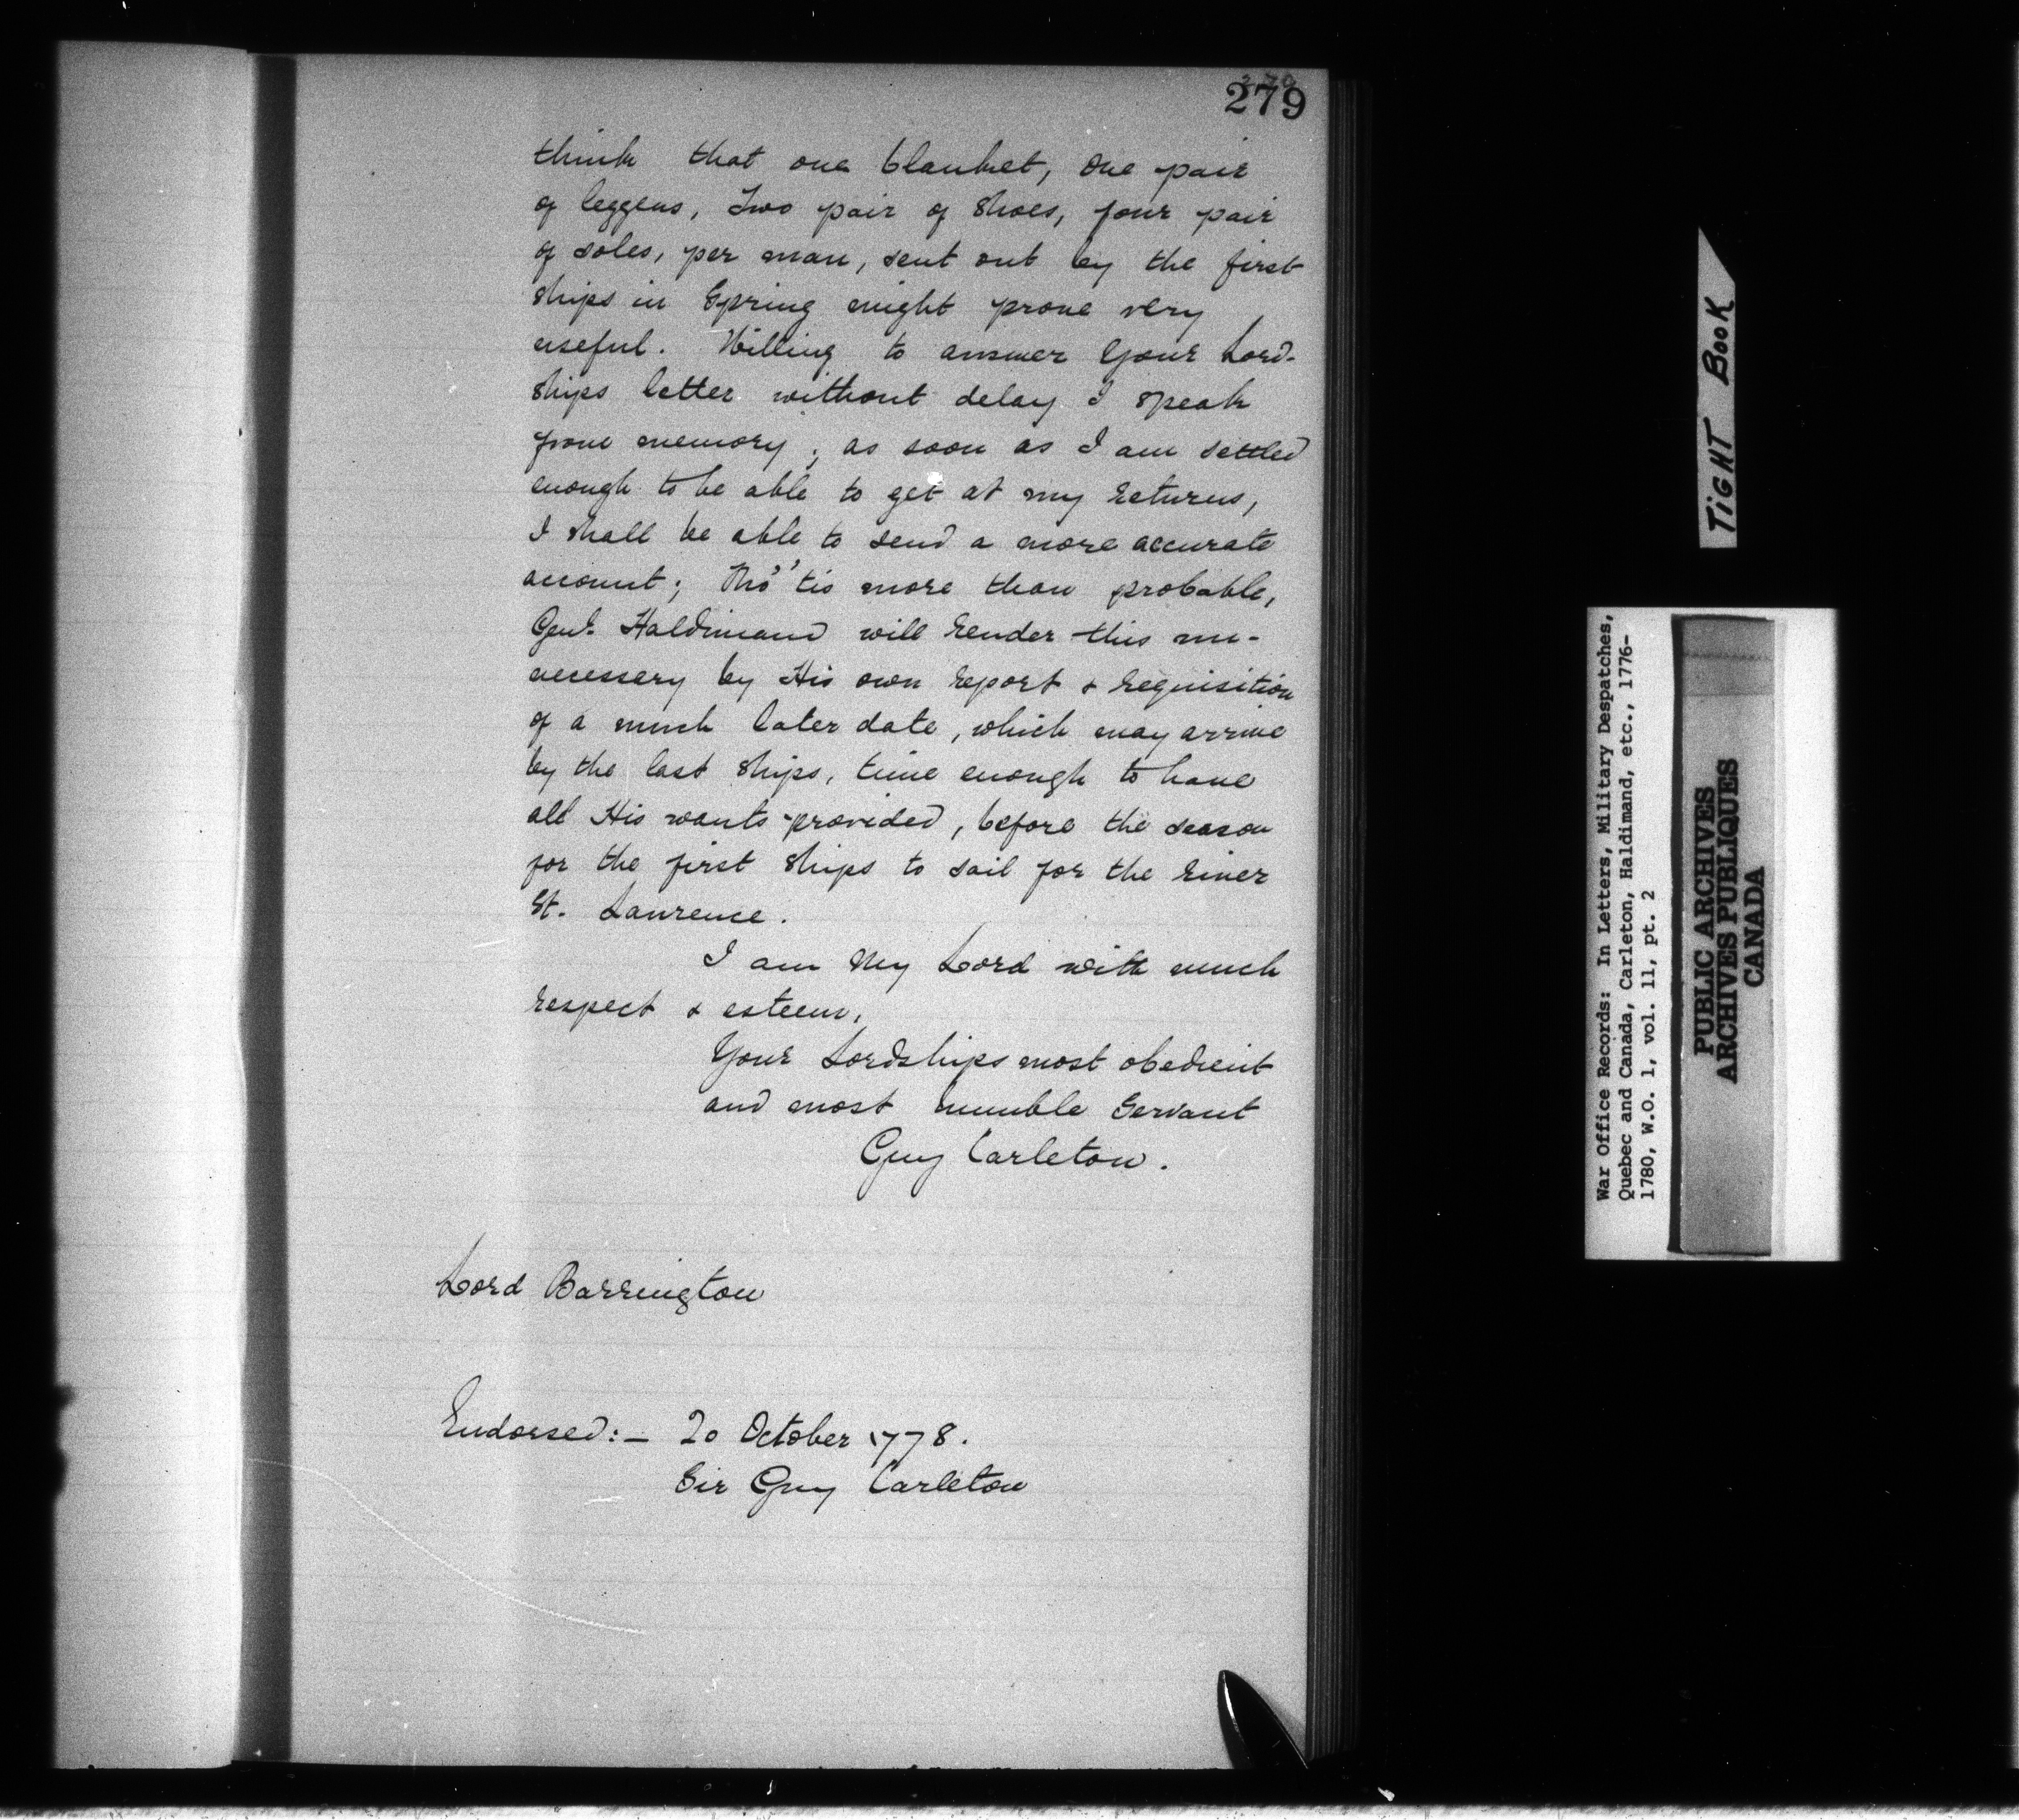 279
think that one blanket, One pair
of leggens, Two pair of Shoes, four pair
of soles, per man, sent out by the first
Ships in Spring might prove very
useful. Willing to answer Your Lord-
ships letter without delay I speak
from memory; as soon as I am settled
enough to be able to get at my returns,
I shall be able to send a more accurate
account; Tho' 'tis more than probable,
Genl. Haldimand will render this un-
necessary by His own report & requisition
of a much later date, which may arrive
by the last Ships, time enough to have
all His wants provided, before the season
for the first Ships to sail for the river
St. Lawrence.
I am My Lord with much
respect & esteem,
Your Lordships most obedient
and most humble Servant
Guy Carleton.
Lord Barrington
Endorsed:- 20 October 1778.
Sir Guy Carleton
TIGHT BOOK
War Office Records: In Letters, Military Despatches,
Quebec and Canada, Carleton, Haldimand, etc., 1776-
1780, W.O. 1, vol. 11, pt. 2
PUBLIC ARCHIVES
ARCHIVES PUBLIQUES
CANADA